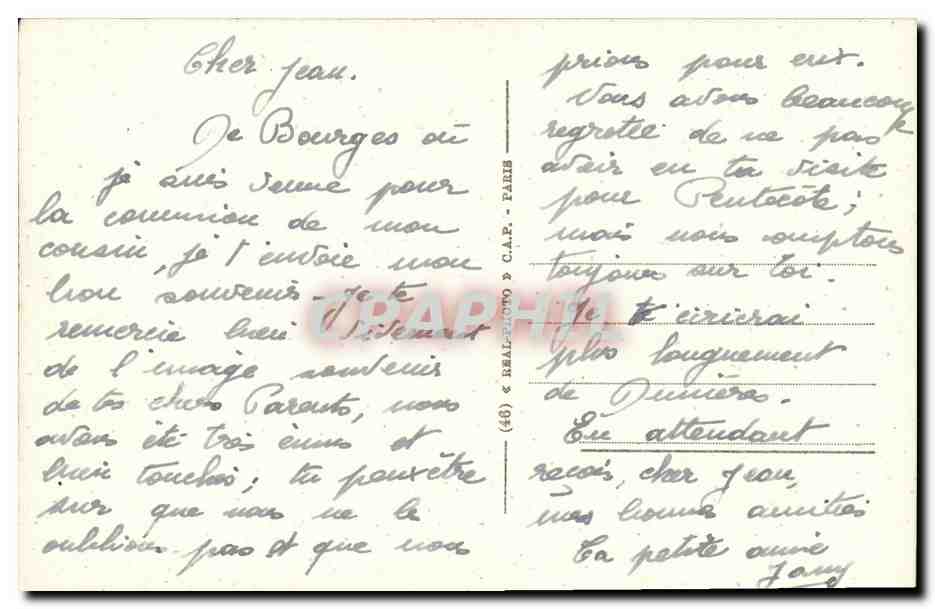 Cher Jean.
De Bourges où
je suis venue pour
la communion de mon
cousin, je t'envoie mon
bon souvenir. Je te
remercie bien vivement
de l'image souvenir
de tes chers Parents, nous
avons été très émus et
bien touchés; tu peux être
sur que nous ne le
oublions pas et que nous
prions pour eux.
Nous avons beaucoup
regretté de ne pas
avoir eu ta visite
pour Pentecôte;
mais nous comptons
toujours sur toi.
Je t'écrirai
plus longuement
de
En attendant
reçois, cher Jean,
mes bonnes amitiés
Ta petite amie
(46) « REAL-PHOTO » C.A.P. - PARIS
CPAPHIL